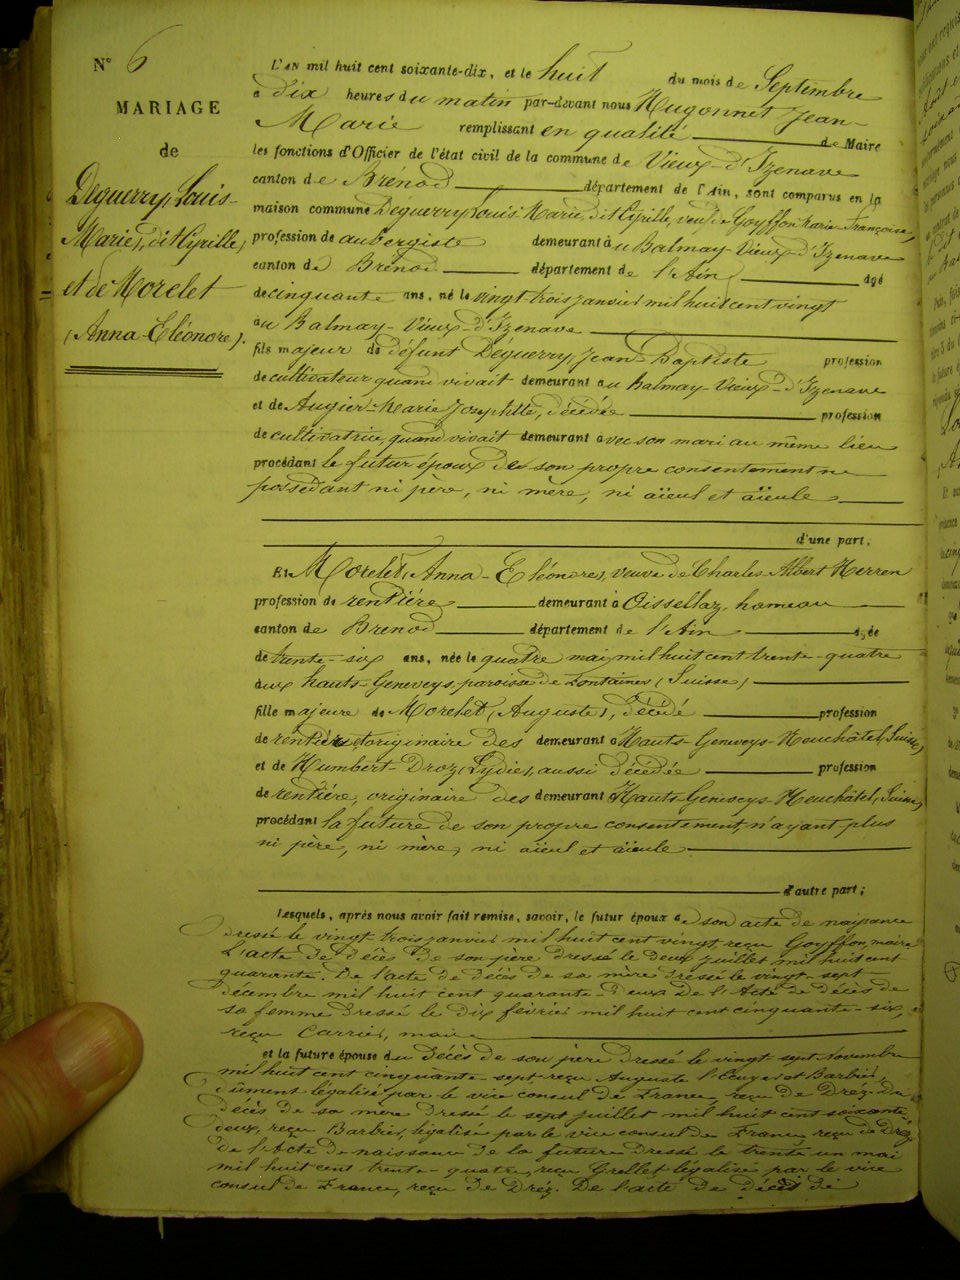 N° 6
MARIAGE
de
Deguerry, Louis-
Marie, dit Cyrille,
et de Morelet
(Anna-Eléonore).
L'AN mil huit cent soixante-dix, et le huit du mois de Septembre
à dix heures du matin par-devant nous Hugonnet Jean-
Marie remplissant en qualité de Maire
les fonctions d'Officier de l'état civil de la commune de Vieux-d'Izenave
canton de Brénod département de l'Ain, sont comparus en la
maison commune Déguerry, Louis Marie, dit Cyrille, veuf de Goyffon Marie-Françoise,
profession de aubergiste demeurant à u Balmay-Vieux-d'Izenave
canton de Brénod département de l'Ain âgé
de cinquante ans, né le vingt-trois janvier mil huit cent vingt
au Balmay-Vieux-d'Izenave
fils majeur de défunt Déguerry, Jean Baptiste profession
de cultivateur quand vivait demeurant au Balmay-Vieux-d'Izenave
et de Augier-Marie Josephtte, décédée profession
de cultivatrice, quand vivait demeurant avec son mari au même lieu
procédant le futur époux de son propre consentement ne
possédant ni père, ni mère, ni aïeul et aïeule
d'une part,
Et Morelet, Anna-Eléonore, veuve de Charles-Albert Herren
profession de rentière demeurant à Oissellaz, hameau
canton de Brénod département de l'Ain âgée
de trente-six ans, née le quatre mai mil huit cent trente-quatre
aux hauts-Geneveys, paroisse de Fontaines, (Suisse)
fille majeure de Morelet, (Auguste), décédé profession
de rentière originaire des demeurant à Hauts-Geneveys-Neuchâtel, Suisse,
et de Humbert-Droz, Lydie, aussi décédée profession
de rentière, originaire des demeurant Hauts-Geneveys-Neuchâtel, (Suisse)
procédant la future de son propre consentement, n'ayant plus
ni père, ni mère, ni aïeul et aïeule
d'autre part;
Lesquels, après nous avoir fait remise, savoir, le futur époux de son acte de naissance
dressé le vingt-trois janvier mil huit cent vingt, reçu Goyffon, maire
L'acte de décès de son père dressé le deux juillet mil huit cent
quarante. De l'acte de décès de sa mère dressé le vingt-sept
décembre mil huit cent quarante-deux De l'Acte de décès de
sa femme dressé le dix février mil huit cent cinquante-six,
reçu Carrier, maire
et la future épouse du décès de son père dressé le vingt sept Novembre
mil huit cent cinquante-sept, reçu Auguste l'Ecuyer et Barbier,
dûment légalisé par le vice consul de France, reçu de Dréz. Du
décès de sa mère dressé le sept juillet mil huit cent soixante
deux, reçu Barbier, légalisé par le vice consul de France reçu de Dréz
de l'Acte de naissance de la future dressé le trente un mai
mil huit cent trente-quatre, reçu Grellet légalisé par le vice
consul de France, reçu de Dréz. De l'acte de décès de